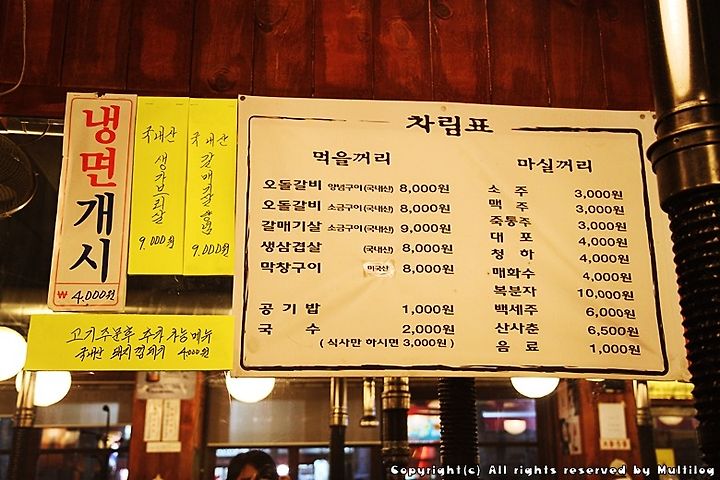 냉면개시
₩ 4,000원
국내산
생가브리살
9,000원
국내산
갈매기살
9,000원
고기주문후 추가 가능메뉴
국내산 돼지껍데기 4,000원
차림표
먹을꺼리
오돌갈비 양념구이(국내산) 8,000원
오돌갈비 소금구이(국내산) 8,000원
갈매기살 소금구이(국내산) 9,000원
생삼겹살 (국내산) 8,000원
막창구이 미국산 8,000원
공기밥 1,000원
국수 2,000원
(식사만 하시면 3,000원)
마실꺼리
소주 3,000원
맥주 3,000원
죽통주 3,000원
대포 4,000원
청하 4,000원
매화수 4,000원
복분자 10,000원
백세주 6,000원
산사춘 6,500원
음료 1,000원
Copyright(c) All rights reserved by Multilog